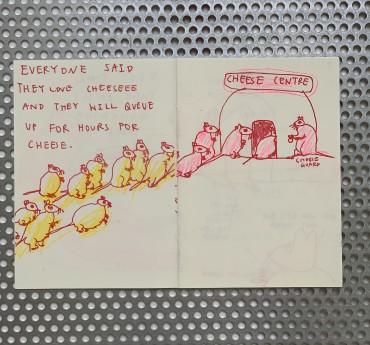 EVERYONE SAID
THEY LOVE CHEESEE
AND THEY WILL QUEUE
UP FOR HOURS FOR
CHEESE.
CHEESE CENTRE
CHEESE
GUARD